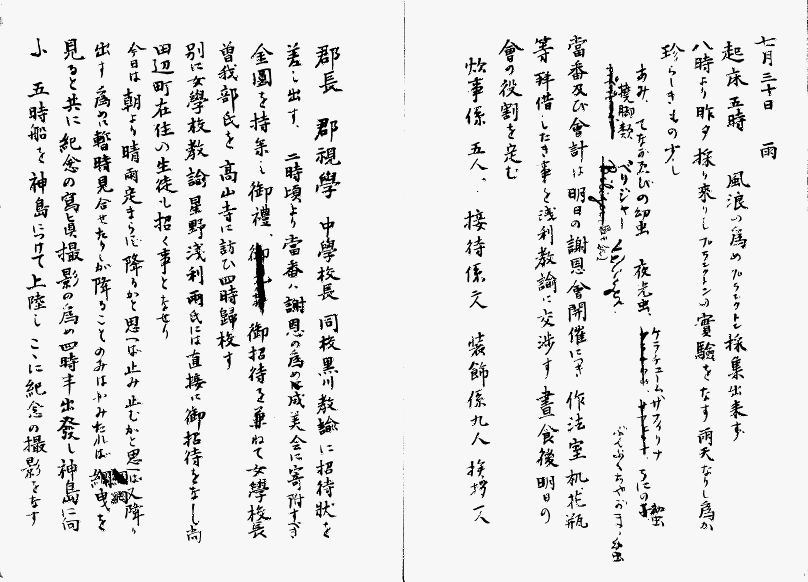 七月三十日 雨
起床五時 風浪の為めプランクトン採集出来ず
八時より昨夕採り来りしプランクトンの実験をなす雨天なりし為か
珍らしきもの少し
あみ、てながえびの幼虫 夜光虫、ケラチュームサフィリナ
橈脚類 うにの 幼虫
當番及び會計は明日の謝恩會開催につき作法室机花瓶
等拝借したき事を浅利教諭に交渉す 晝食後明日の
會の役割を定む
炊事係 五人、 接待係六人 装飾係九人 挨拶一人
郡長 郡視學 中學校長 同校黒川教諭に招待状を
差し出す、二時頃より當番は謝恩の為め成美会に寄附すべき
金圓を持参し御禮、御招待を兼ねて女學校長
曽我部氏を高山寺に訪ひ四時歸校す
別に女學校教諭星野浅利両氏には直接に御招待をなし尚
田辺町在住の生徒も招く事となせり
今日は朝より晴雨定まらず降るかと思へば止み止むかと思へば又降り
出す為めに暫時見合せたりしが降ることのみはかみたれば 網曳を
見ると共に紀念の寫眞撮影の為め四時半出發し神島に向
ふ 五時船を神島につけて上陸しここに紀念の撮影をなす